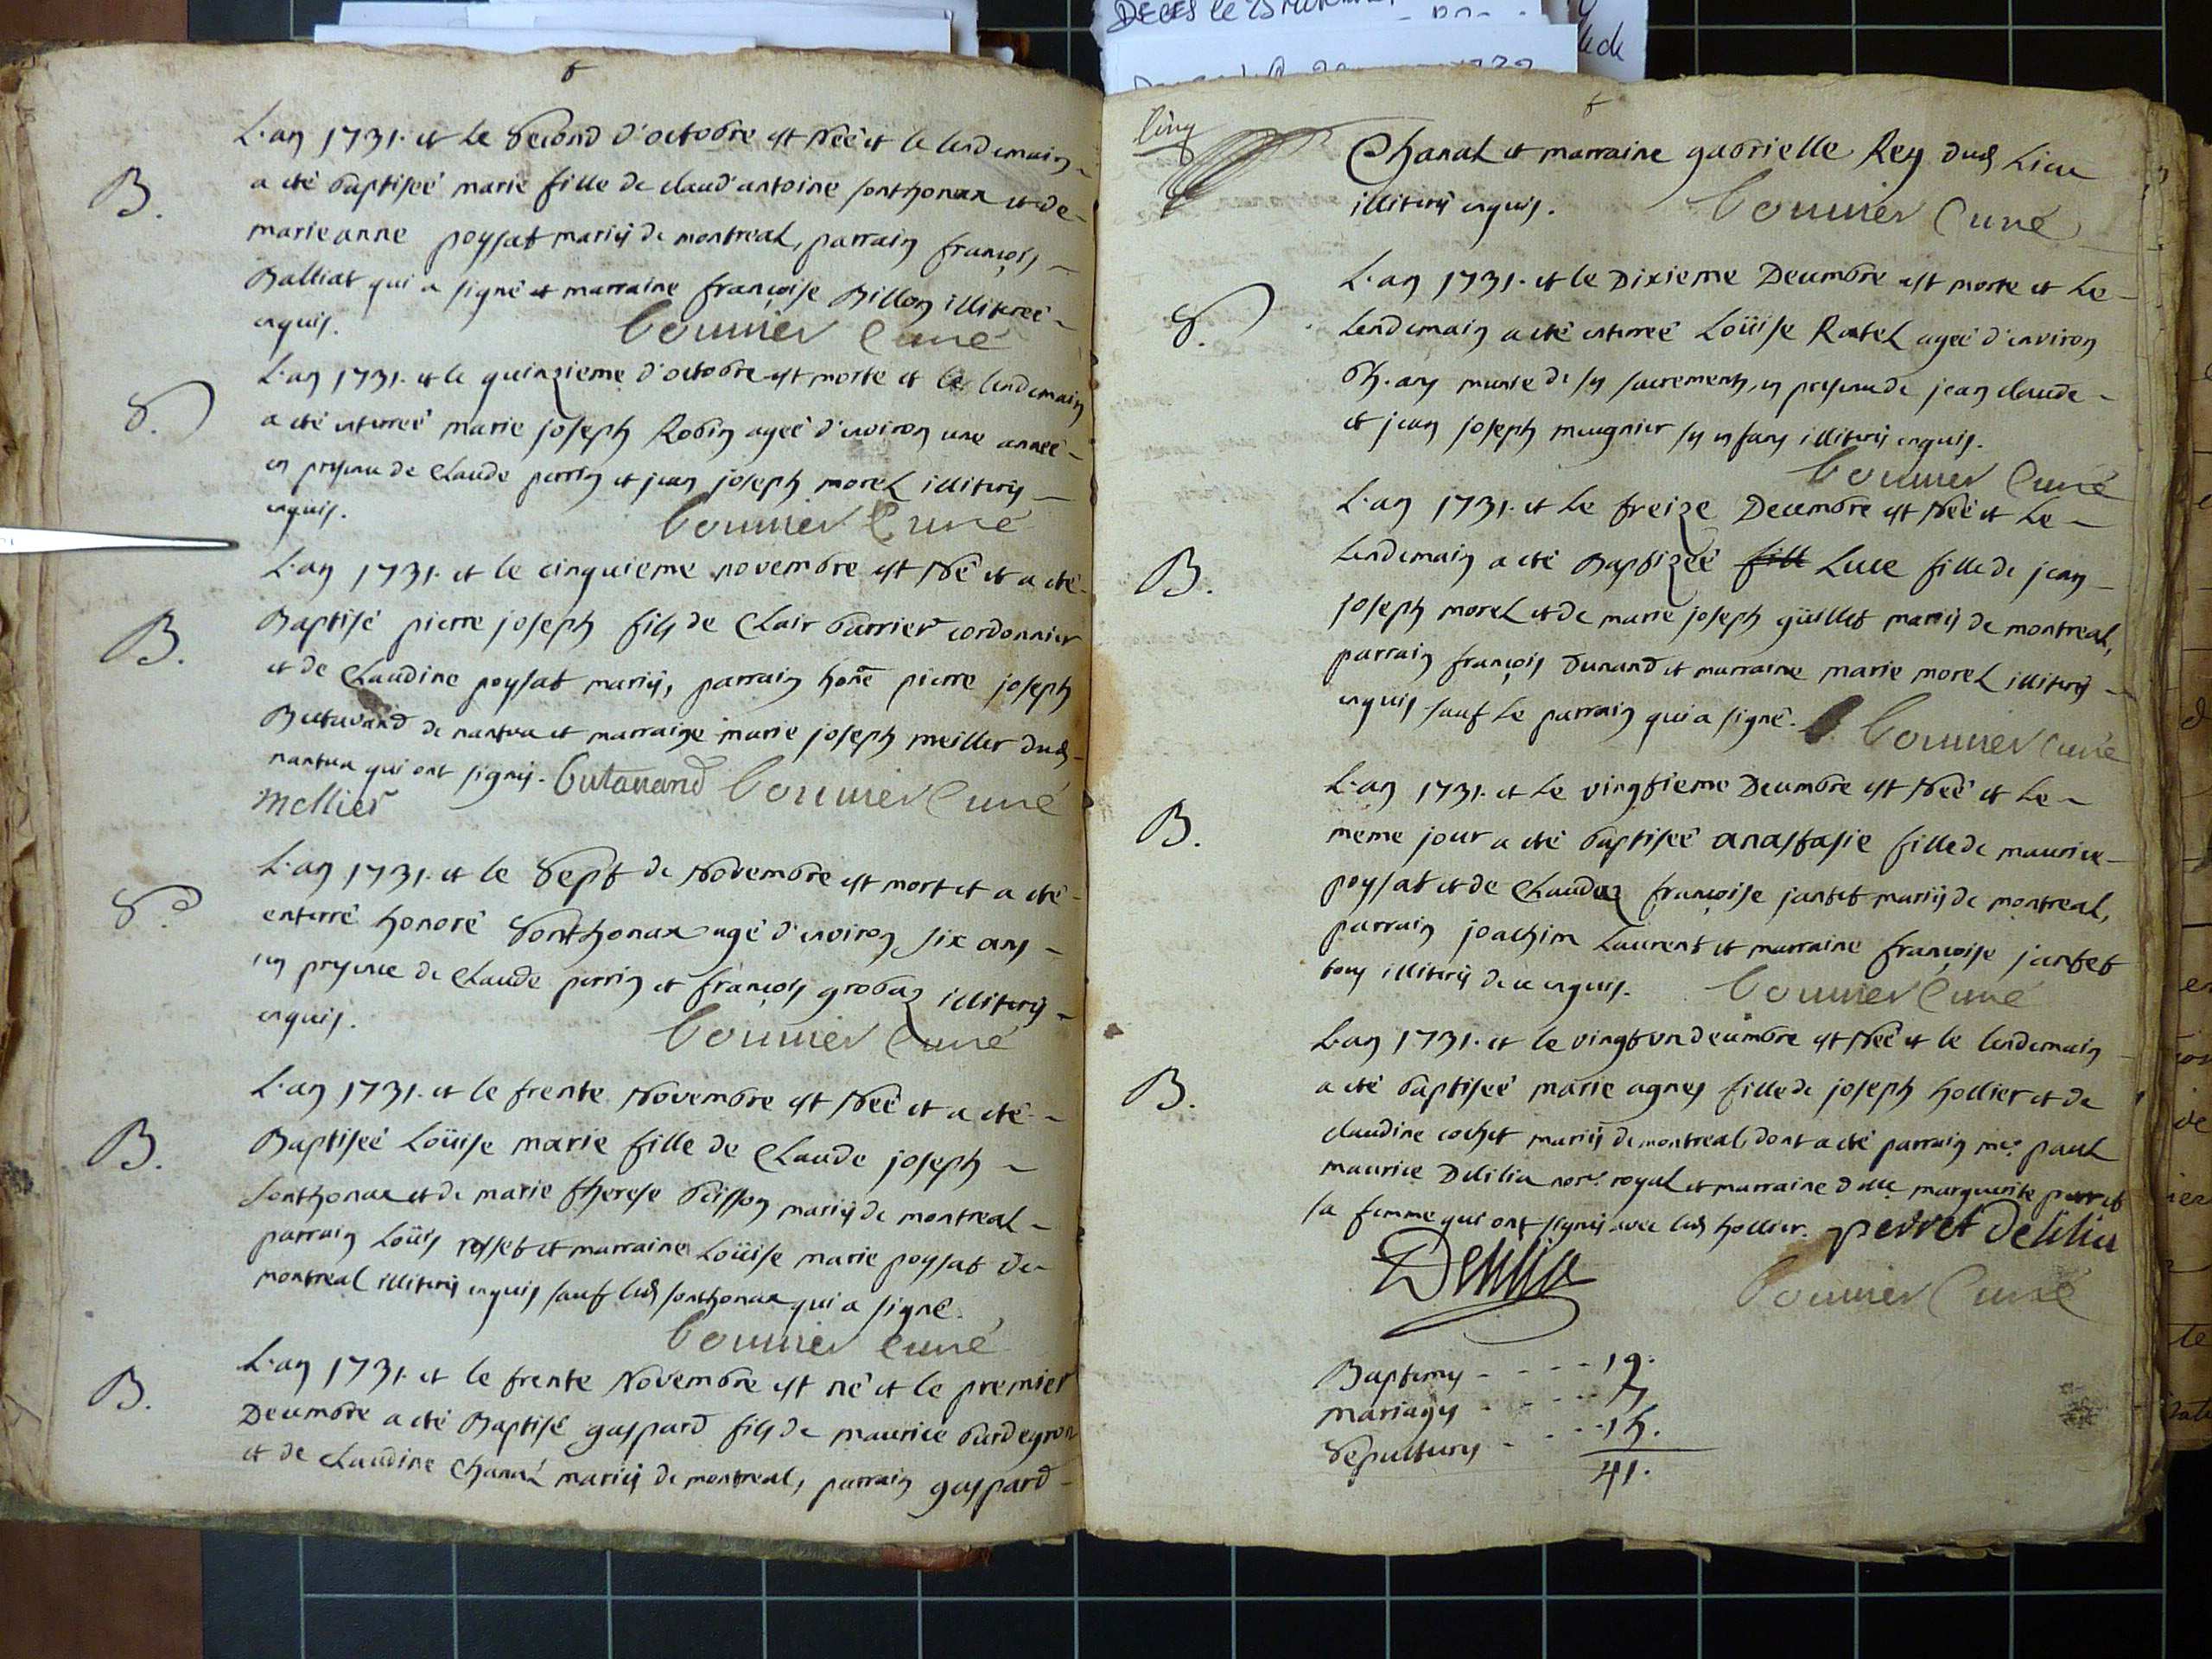 L'an 1731. et le second d'octobre est née et le lendemain
B.
a eté baptiseé marie fille de claud'antoine sonthonax et de
marie anne poysat mariés de montreal, parrain françois
Balliat qui a signé et marraine françoise Billon illitereé
enquis.
Cuné
L'an 1731. et le quinzieme d'octobre est morte et le lendemain
S.
a eté enterreé marie joseph Robin ageé d'environ une anneé
en presence de Claude perrin et jean joseph morel illiterés
enquis.
Curé
L'an 1731. et le cinquieme novembre est né et a eté
B.
Baptisé pierre joseph fils de Clair barrier cordonnier
et de Claudine poysat mariés, parrain hone pierre joseph
de nantua et marraine marie joseph meillier dud
nantua qui ont signés. Butavand Curé
Mellier
L'an 1731. et le sept de Novembre est mort et a eté
S.
enterré honoré Sonthonax agé d'environ six ans
en presence de Claude perrin et françois grobaz illiterés
enquis.
Curé
L'an 1731. et le trente Novembre est Neé et a eté
B.
Baptiseé Loüise marie fille de Claude joseph
sonthonax et de marie therese buisson mariés de montreal
parrain Loüis rosset et marraine Loüise marie poysat de
montreal illiterés enquis sauf led sonthonax qui a signé.
Curé
L'an 1731. et le trente Novembre est né et le premier
B.
Decembre a eté Baptisé gaspard fils de maurice burdeyron
et de Claudine Chanal mariés de montreal, parrain gaspard
Chanal et marraine gabrielle Rey dud Lieu
illiterés enquis.
Curé
L'an 1731. et le Dixieme Decembre est morte et Le
S.
Lendemain a eté enterreé Loüise Ratel ageé d'environ
ans munie de ses sacrements, en presence de jean claude
et jean joseph meugnier ses enfans illiterés enquis.
Curé
L'an 1731. et Le treize Decembre est Neé et Le
B.
Lendemain a eté Baptizeé fill Luce fille de jean
joseph morel et de marie joseph güillet mariés de montreal,
parrain françois Dunand et marraine marie morel illiterés
enquis sauf Le parrain qui a signé.
Curé
L'an 1731. et Le vingtieme Decembre est Neé et Le
B.
meme jour a eté baptiseé anastasie fille de maurice
poysat et de Claudaz françoise jantet mariés de montreal,
parrain joachim Laurent et marraine françoise jantet
tous illiterés de ce enquis.
Curé
L'an 1731. et le vingt un decembre est Neé et le lendemain
B.
a eté baptiseé marie agnes fille de joseph hollier et de
claudine cochet mariés de montreal, dont a eté parrain me. paul
maurice Delilia nore. royal et marraine dlle marguerite perret
sa femme qui ont signés avec led hollier. perret Delilia
Delilia
Curé
Baptemes - - - - 19.
Mariages - - - - 7
Sepultures - - - - 15.
41.